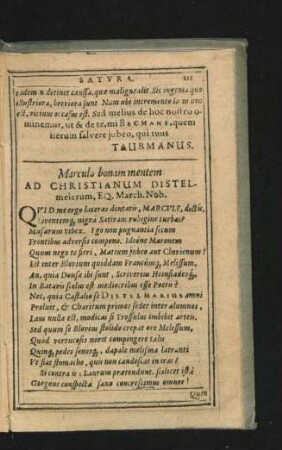 SATVRA.
eadem n. detinet caussa, quæ maligna
illustriora, breviora sunt. Nam ubi incremento
est, vicinus occasus est. Sed melius de hoc nostro o-
minemur, ut & de te, mi BACMANE, quem
iterum salvere jubeo, qui tuus
TAUBMANUS.
Marculo bonam mentem
AD CHRISTIANUM DISTEL-
meierum, EQ. March. Nob.
QVID me ergo laceras dentatis, MARCVLE, dictis,
nigrâ Satiram rubigine turbas?
Musarum vibex. Ego non pugnantia secum
Frontibus adversis compono. Idóne Maronem
Quum nego te fieri, Matium jubeo aut Cluvienum?
Est inter Bluvium quiddam Francúmq, Melissum.
An, quia Dousa ibi sunt, Scriverius
In Batavis solus est mediocribus esse Poetis?
Nec, quia Castalio se DISTELMARIUS amni
Proluit, & Charitum primas sedet inter alumnos,
Laus nulla est, modicus si Trossulus imbibit arteis,
Sed quum se Bluvius stolido crepat ore Melissum,
Quòd verticuleis norit compingere tales
Quinq, pedes senosq, dapale melisma latranti
Vt fiat stomacho, qui non candescat
Si contra is Laurum prætendunt. scilicet istâ
Gorgone conspectâ saxo concrescimus omnes!
Quin